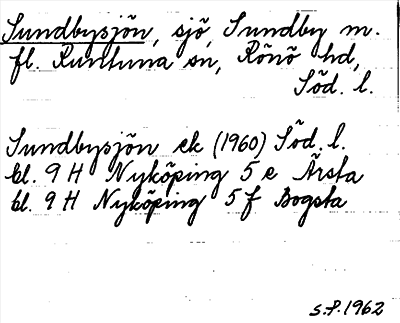 Sundbysjön, sjö, Sundby m.
fl. Runtuna sn, Rönö hd,
Söd. l.
Sundbysjön ek (1960) Söd. l.
bl. 9 H Nyköping 5 e Årsta
bl. 9 H Nyköping 5 f Bogsta
S.P. 1962